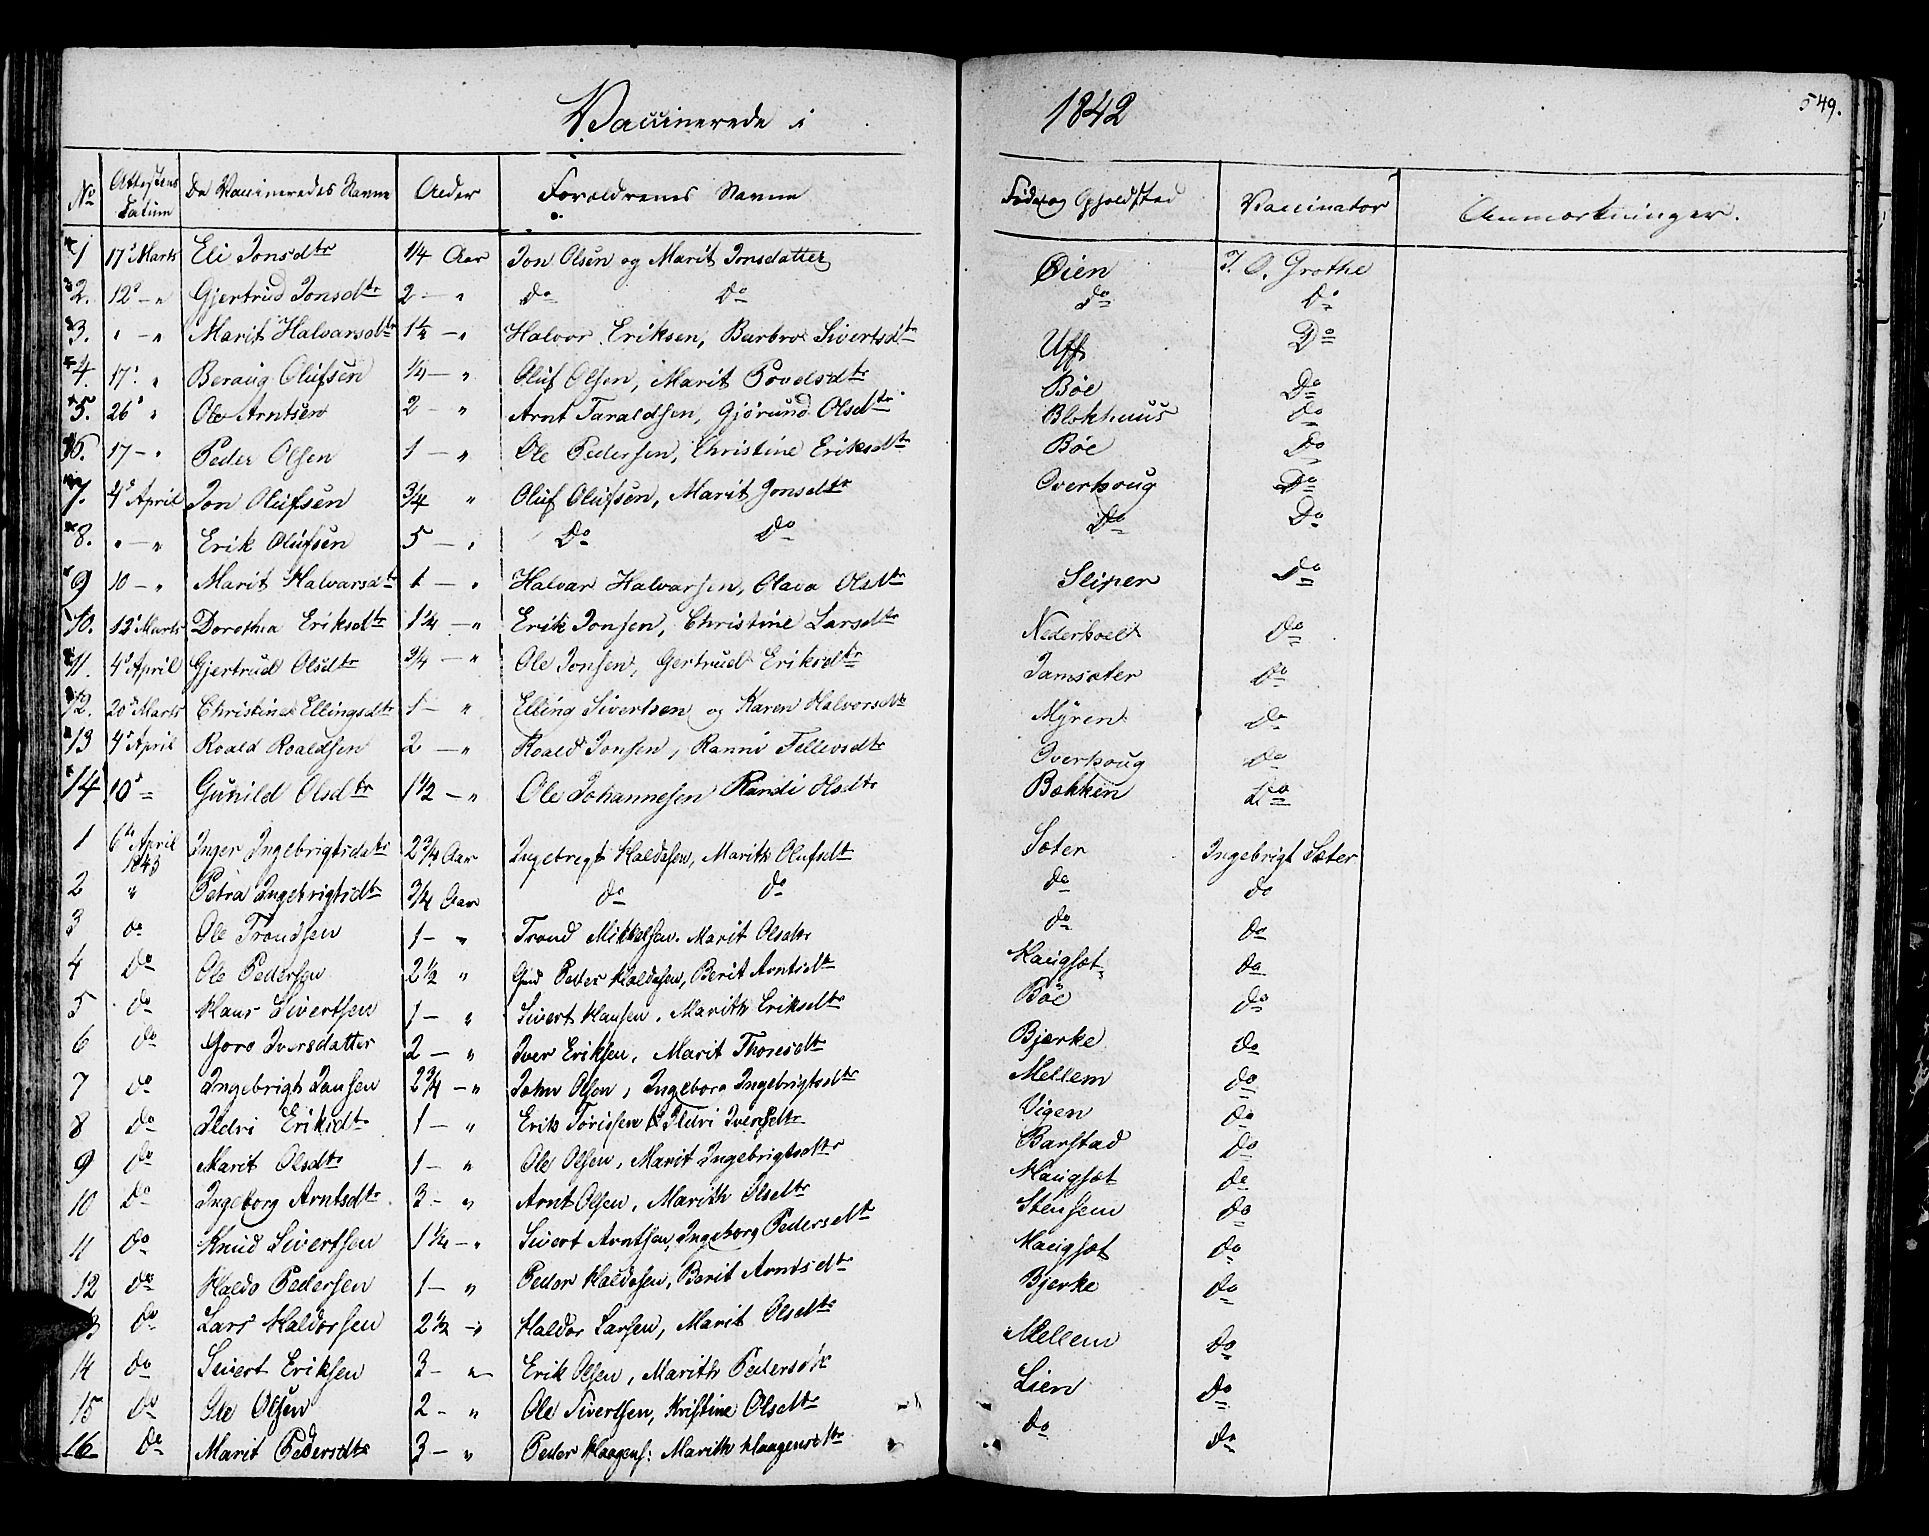 Vaccinerede i 1842
549.
No Attestens Datum De Vaccineredes Navne Alder Forældrenes Navne Føde og Opholdsted Vaccinator Anmærkninger.
1 17de Marts Eli Jonsdtr 1/4 Aar Jon Olsen og Marit Jonsdatter Øien J. O. Grothe
2. 12 — " Gjertrud Jonsdtr 2 — " Do Do Do Do
3. " — " Marit Halvarsdtr 1 1/2 — " Halvor Eriksen, Barbro Sivertsdtr Uff Do
4. 17. " Beraug Olufsen 1/4 — " Oluf Olsen, Marit Povelsdtr Böe Do
5. 26 " Ole Arntsen 2 — " Arnt Taraldsen, Gjørund Olsdtr Blokhuus do
6. 17 — " Peder Olsen 1 — " Ole Pedersen, Christine Eriksdtr Böe Do
7. 4 April Jon Olufsen 3/4 " Oluf Olufsen, Marit Jonsdtr Overhoug Do
8. " — " Erik Olufsen 5 — " Do Do Do Do
9 10 — " Marit Halvarsdtr 1 — " Halvar Halvarsen, Olava Olsdtr Sliper Do
10. 12 Marts Dorothea Eriksdtr 1 1/4 — " Erik Jonsen, Christine Larsdtr Nederhoel Do
11. 4 April Gjertrud Olsdtr 3/4 — " Ole Jonsen, Gertrud Eriksdtr Jamsæter do
12. 20 Marts Christine Ellingsdtr 1 — " Elling Sivertsen og Karen Halvorsdtr Myren Do
13 4 April Roald Roaldsen 2 — " Roald Jonsen, Ranni Tellevsdtr Overhoug do
14 10 = Gunild Olsdtr 1 1/2 — " Ole Johannesen Randi Olsdtr Bækken Do
1 6te April 1843 Inger Ingebrigtsdatr 2 3/4 Aar Ingebrigt Haldosen, Marith Olufsdtr Sæter Ingebrigt Sæter
2 " Petra Ingebrigtsdtr 3/4 Aar do do do do
3 do Ole Trondsen 1 — " Trond Mikkelsen. Marit Olsdtr do do
4 Do Ole Pedersen 2 1/2 " Peder Haldosen, Berit Arntsdtr Haugsæt do
5 do Hans Sivertsen 1 — " Sivert Hansen, Marith Eriksdtr Böe do
6 do Goro Iversdatter 2 — " Iver Eriksen, Marit Thoresdtr Bjerke do
7 do Ingebrigt Jansen 2 3/4 — " John Olsen, Ingeborg Ingebrigtsdtr Mellem do
8 Do Ildri Eriksdtr 1 — " Erik Torissen Ildri Iversdtr Vigen do
9 Do Marit Olsdtr 1 — " Ole Olsen, Marit Ingebrigtsdtr Barstad do
10 Do Ingeborg Arntsdtr 3 — " Arnt Olsen, Marith Olsdtr Haugsæt do
11 do Knud Sivertsen 1 1/4 — " Sivert Arntsen, Ingeborg Pedersdtr Stensem do
12 do Haldo Pedersen 1 — " Peder Haldosen, Berit Arntsdtr Haugsæt do
13 do Lars Haldorsen 2 1/2 — " Haldor Larsen, Marit Olsdtr Bjerke do
14 do Sivert Eriksen 3 — " Erik Olsen, Marith Pedersdtr Mellem do
15 do Ole Olsen 2 — " Ole Sivertsen, Kristine Olsdtr Lien do
16 do Marit Pedersdtr 3 — " Peder Haagens: Marith Haagensdtr do do